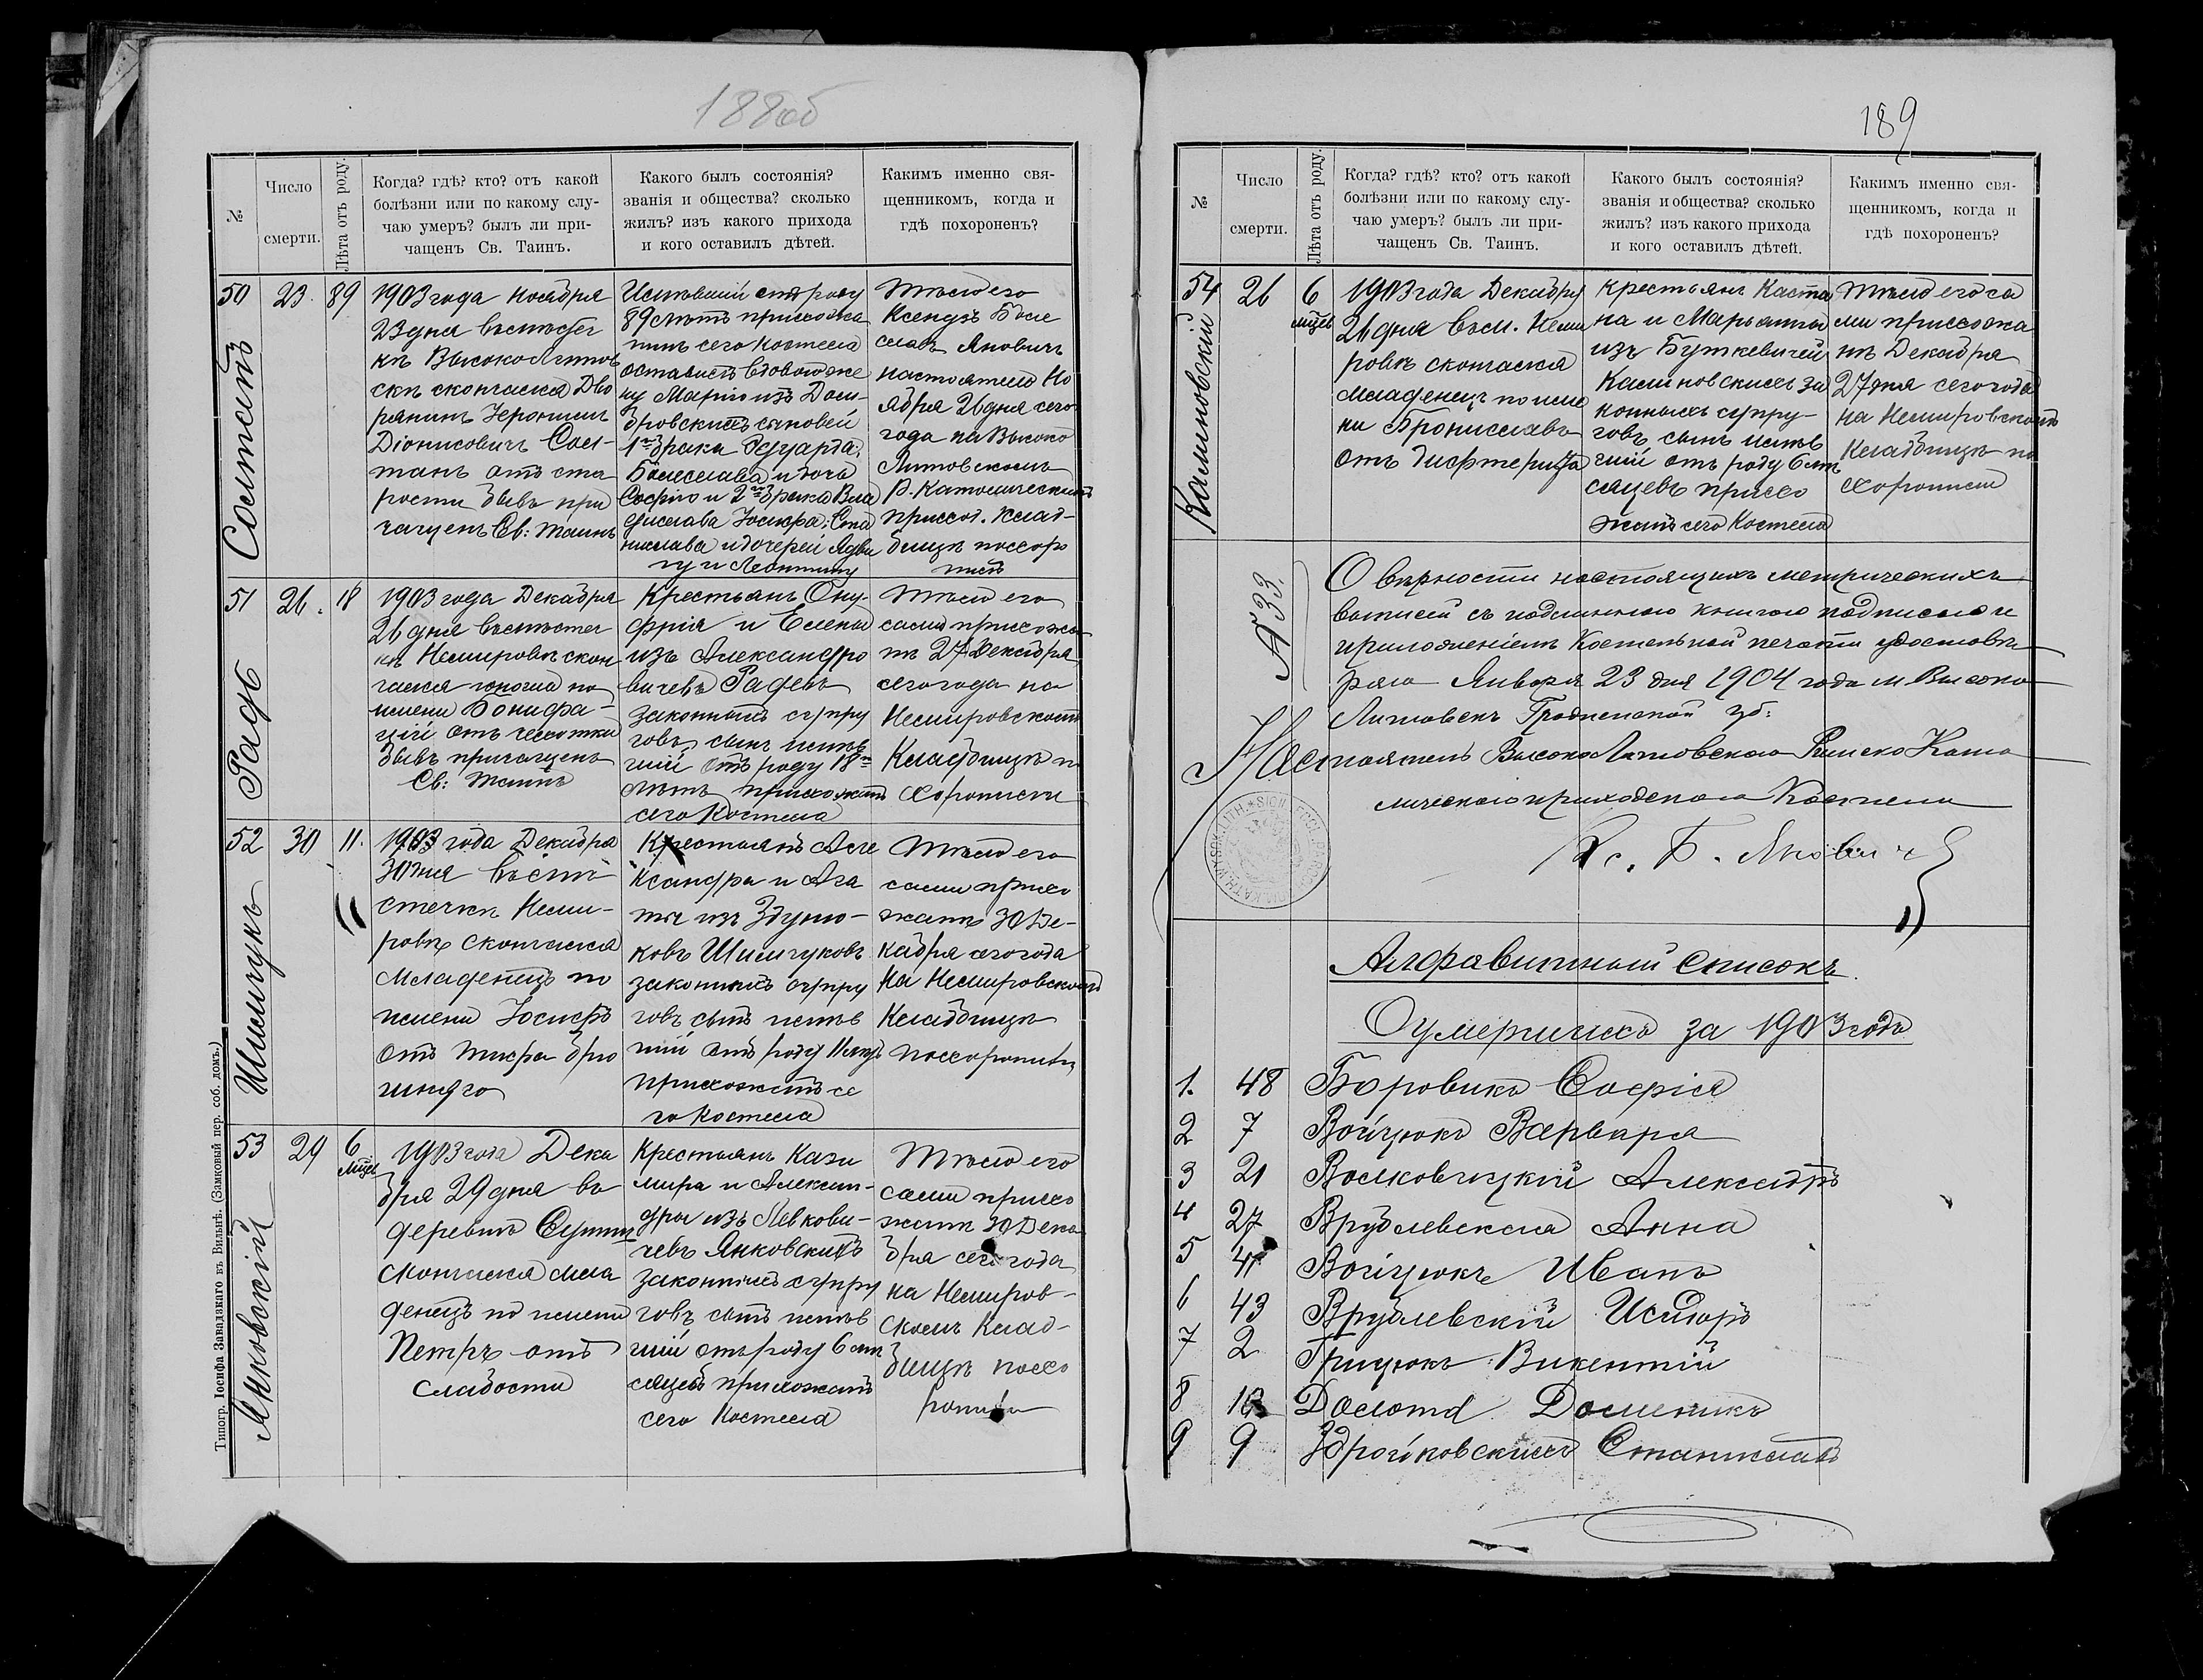 188об
№
Число смерти.
Лѣта отъ роду.
Когда? гдѣ? кто? отъ какой
болѣзни или по какому слу-
чаю умеръ? былъ ли при-
чащенъ Св. Таинъ.
Какого былъ состоянія?
званія и общества? сколько
жилъ? изъ какого прихода
и кого оставилъ дѣтей.
Какимъ именно свя-
щенникомъ, когда и
гдѣ похороненъ?
50
Солтанъ
23.
89
1903 года Ноября
23 дня въ мѣстеч
кѣ Высоколитов
скѣ скончался Дво
рянинъ Іеронимъ
Діонисовичъ Сол-
танъ отъ ста
рости бывъ при
чащенъ Св: Таинъ
Имѣвшій отъ роду
89 лѣтъ прихожа
нинъ сего Костела
оставилъ вдовою же
ну Марію изъ Дом-
бровскихъ сыновей
1го брака Эдуарда,
Болеслава и дочь
Софію и 2го брака Вла
дислава Іосифа, Ста
нислава и дочерей Ядви
гу и Леонтину
Тѣло его
Ксендзъ Боле
славъ Яновичъ
настоятель Но
ября 26 дня сего
года на Высоко
Литовскомъ
Р. Католическомъ
приход. клад-
бищѣ похоро
нилъ
51
Радь
26.
18
1903 года Декабря
26 дня въ мѣстеч
кѣ Немировѣ скон
чался юноша по
имени Бонифа-
цій отъ чахотки
бывъ причащенъ
Св: Таинъ
Крестьянъ Ону-
фрія и Елены
изъ Александро
вичевъ Радевъ
законныхъ супру
говъ сынъ имѣв
шій отъ роду 18ть
лѣтъ прихожанъ
сего Костела
Тѣло его
сами прихожа
не 27 Декабря
сего года на
Немировскомъ
Кладбищѣ по
хоронили
52
Шимчукъ
30
11.
1903 года Декабря
30 дня въ мѣ
стечкѣ Неми-
ровѣ скончался
младенецъ по
имени Іосифъ
отъ тифа брю
шнаго
Крестьянъ Але
ксандра и Ага
ты изъ Здуню-
ковъ Шимчуковъ
законныхъ супру
говъ сынъ имѣв
шій отъ роду 11 лѣтъ
прихожанъ се
го Костела
Тѣло его
сами прихо
жане 30 Де-
кабря сего года
На Немировскомъ
Кладбищѣ
похоронили
53
Янковскій
29
6
мцев
1903 года Дека
бря 29 дня въ
деревнѣ
скончался мла
денецъ по имени
Петръ отъ
слабости
Крестьянъ Кази
мира и Алексан-
дры изъ Левкови-
чевъ Янковскихъ
законныхъ супру
говъ сынъ имѣв
шій отъ роду 6 мѣ
сяцевъ прихожанъ
сего Костела
Тѣло его
сами прихо
жане 30 Дека
бря сего года
на Немиров-
скомъ Клад-
бищѣ похо
ронили
Типогр. Іосифа Завадзкаго въ Вильнѣ. (Замковый пер. соб. домъ.)
189
№
Число смерти.
Лѣта отъ роду.
Когда? гдѣ? кто? отъ какой
болѣзни или по какому слу-
чаю умеръ? былъ ли при-
чащенъ Св. Таинъ.
Какого былъ состоянія?
званія и общества? сколько
жилъ? изъ какого прихода
и кого оставилъ дѣтей.
Какимъ именно свя-
щенникомъ, когда и
гдѣ похороненъ?
54
Калиновскій
26
6
мцев
1903 года Декабря
26 дня въ м. Неми
ровѣ скончался
младенецъ по име
ни Брониславъ
отъ дифтерита
крестьянъ Каста
на и Марьянны
изъ Буткевичей
Калиновскихъ за
конныхъ супру-
говъ сынъ имѣв
шій отъ роду 6 мѣ
сяцевъ прихо
жанъ сего Костела
Тѣло его са
ми прихожа
не Декабря
27 дня сего года
на Немировскомъ
Кладбищѣ по
хоронили
№33.
О вѣрности настоящихъ метрическихъ
выписей съ подлинною книгою подписью и
приложеніемъ Костельной печати удостовѣ
ряю Января 23 дня 1904 года м Высоко
Литовскъ Гродненской губ:
Настоятель ВысокоЛитовскаго Римско Като
лическаго приходскаго Костела
Кс. Б. Яновичъ
Алфавитный списокъ
О умершихъ за 1903 годъ
1. 48 Боровикъ Софія
2 7 Войцюкъ Варвара
3 21 Волковыцкій Александръ
4 27 Врублевская Анна
5 41 Войцюкъ Иванъ
6 43 Врублевскій Исидоръ
7 2 Грицюкъ Викентій
8 10 Долота Доминикъ
9 9 Здройковскихъ Станиславъ